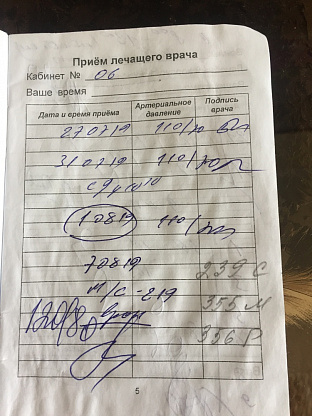 Приём лечащего врача
Кабинет № 06
Ваше время
Дата и время приёма Артериальное давление Подпись врача
270719 110/70
310719 110/70
10819 110/
70819
239 С
м/с - 219
355 М
12098
356 Р
5